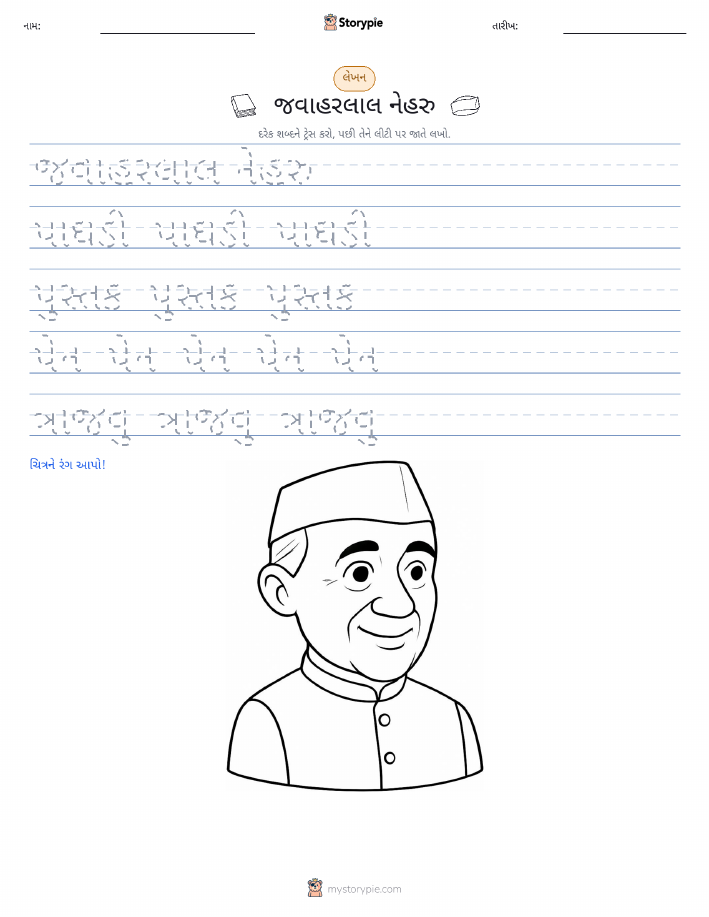 નામ:
Storypie
તારીખ:
લેખન
જવાહરલાલ નેહરુ
દરેક શબ્દને ટ્રેસ કરો, પછી તેને લીટી પર જાતે લખો.
જવાહરલાલ નેહરુ
પાઘડી પાઘડી પાઘડી
પુસ્તક પુસ્તક પુસ્તક
પેન પેન પેન પેન પેન
ત્રાજવુ ત્રાજવુ ત્રાજવુ
ચિત્રને રંગ આપો!
mystorypie.com